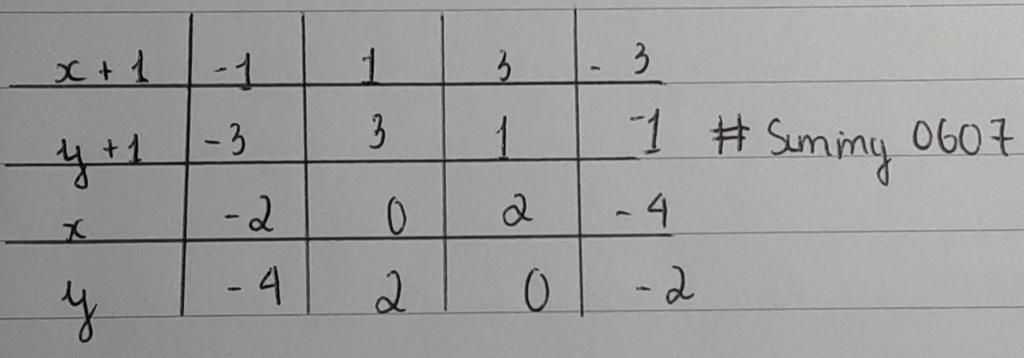 x + 1 -1 1 3 - 3
y + 1 -3 3 1 -1 # Sunniny 0607
x -2 0 2 - 4
y - 4 2 0 - 2